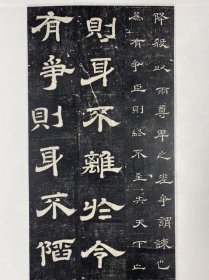 降殺以兩尊卑之差爭謂諫也
為有爭臣則終不至失天下亡
則身不離於令
有爭則身不陷